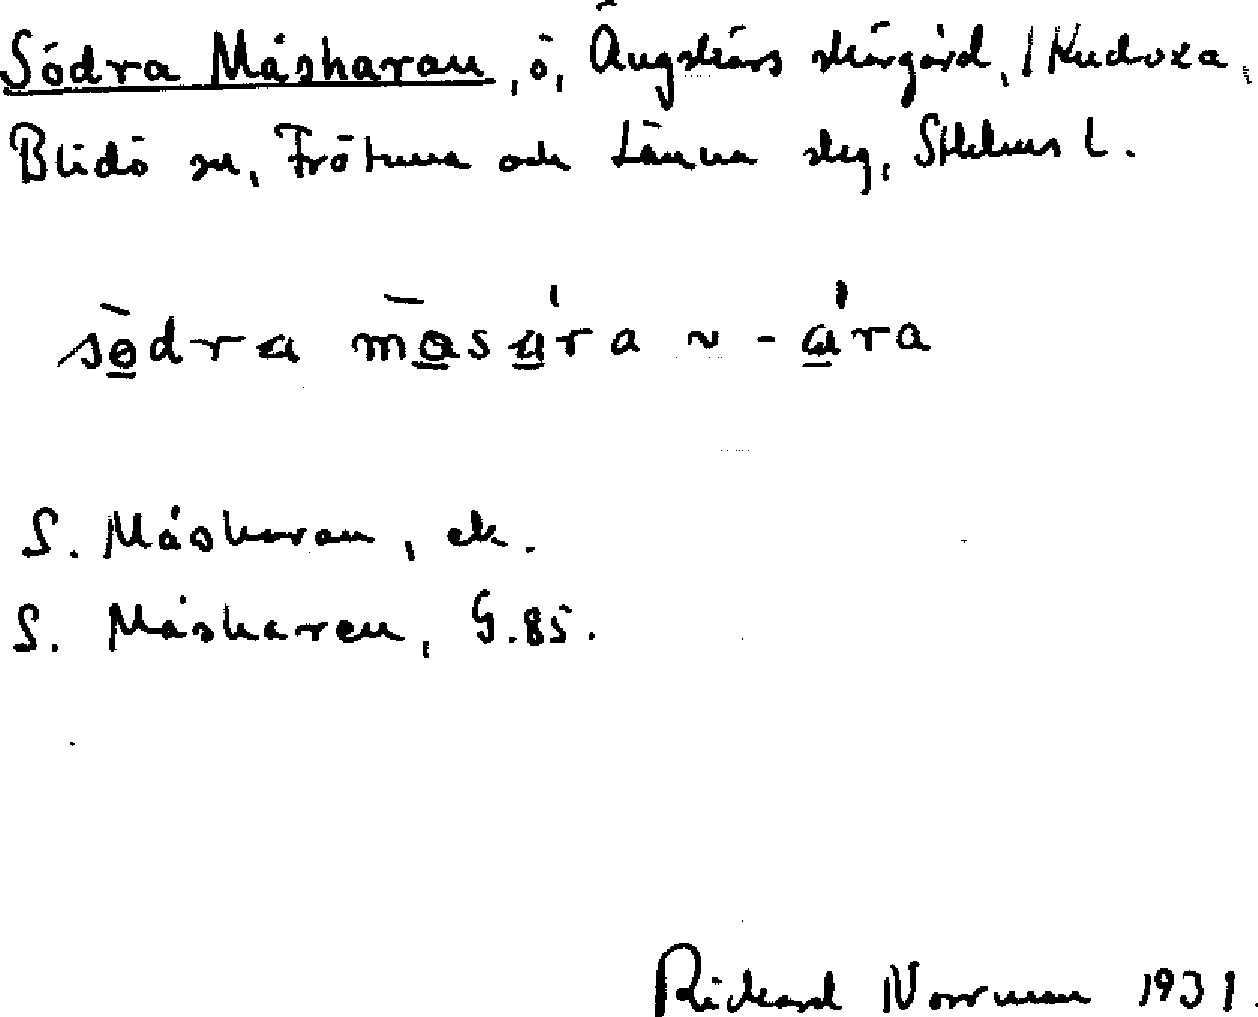 Södra Måsharan, ö, Ängskärs skärgård, / Kudoxa,
Blidö sn, Frötuna och Länna skg, Sthlms L.
södra måsara ~ -ara
S. Måsharan, ek.
S. Måsharen, G.85.
Rickard Norrman 1931.